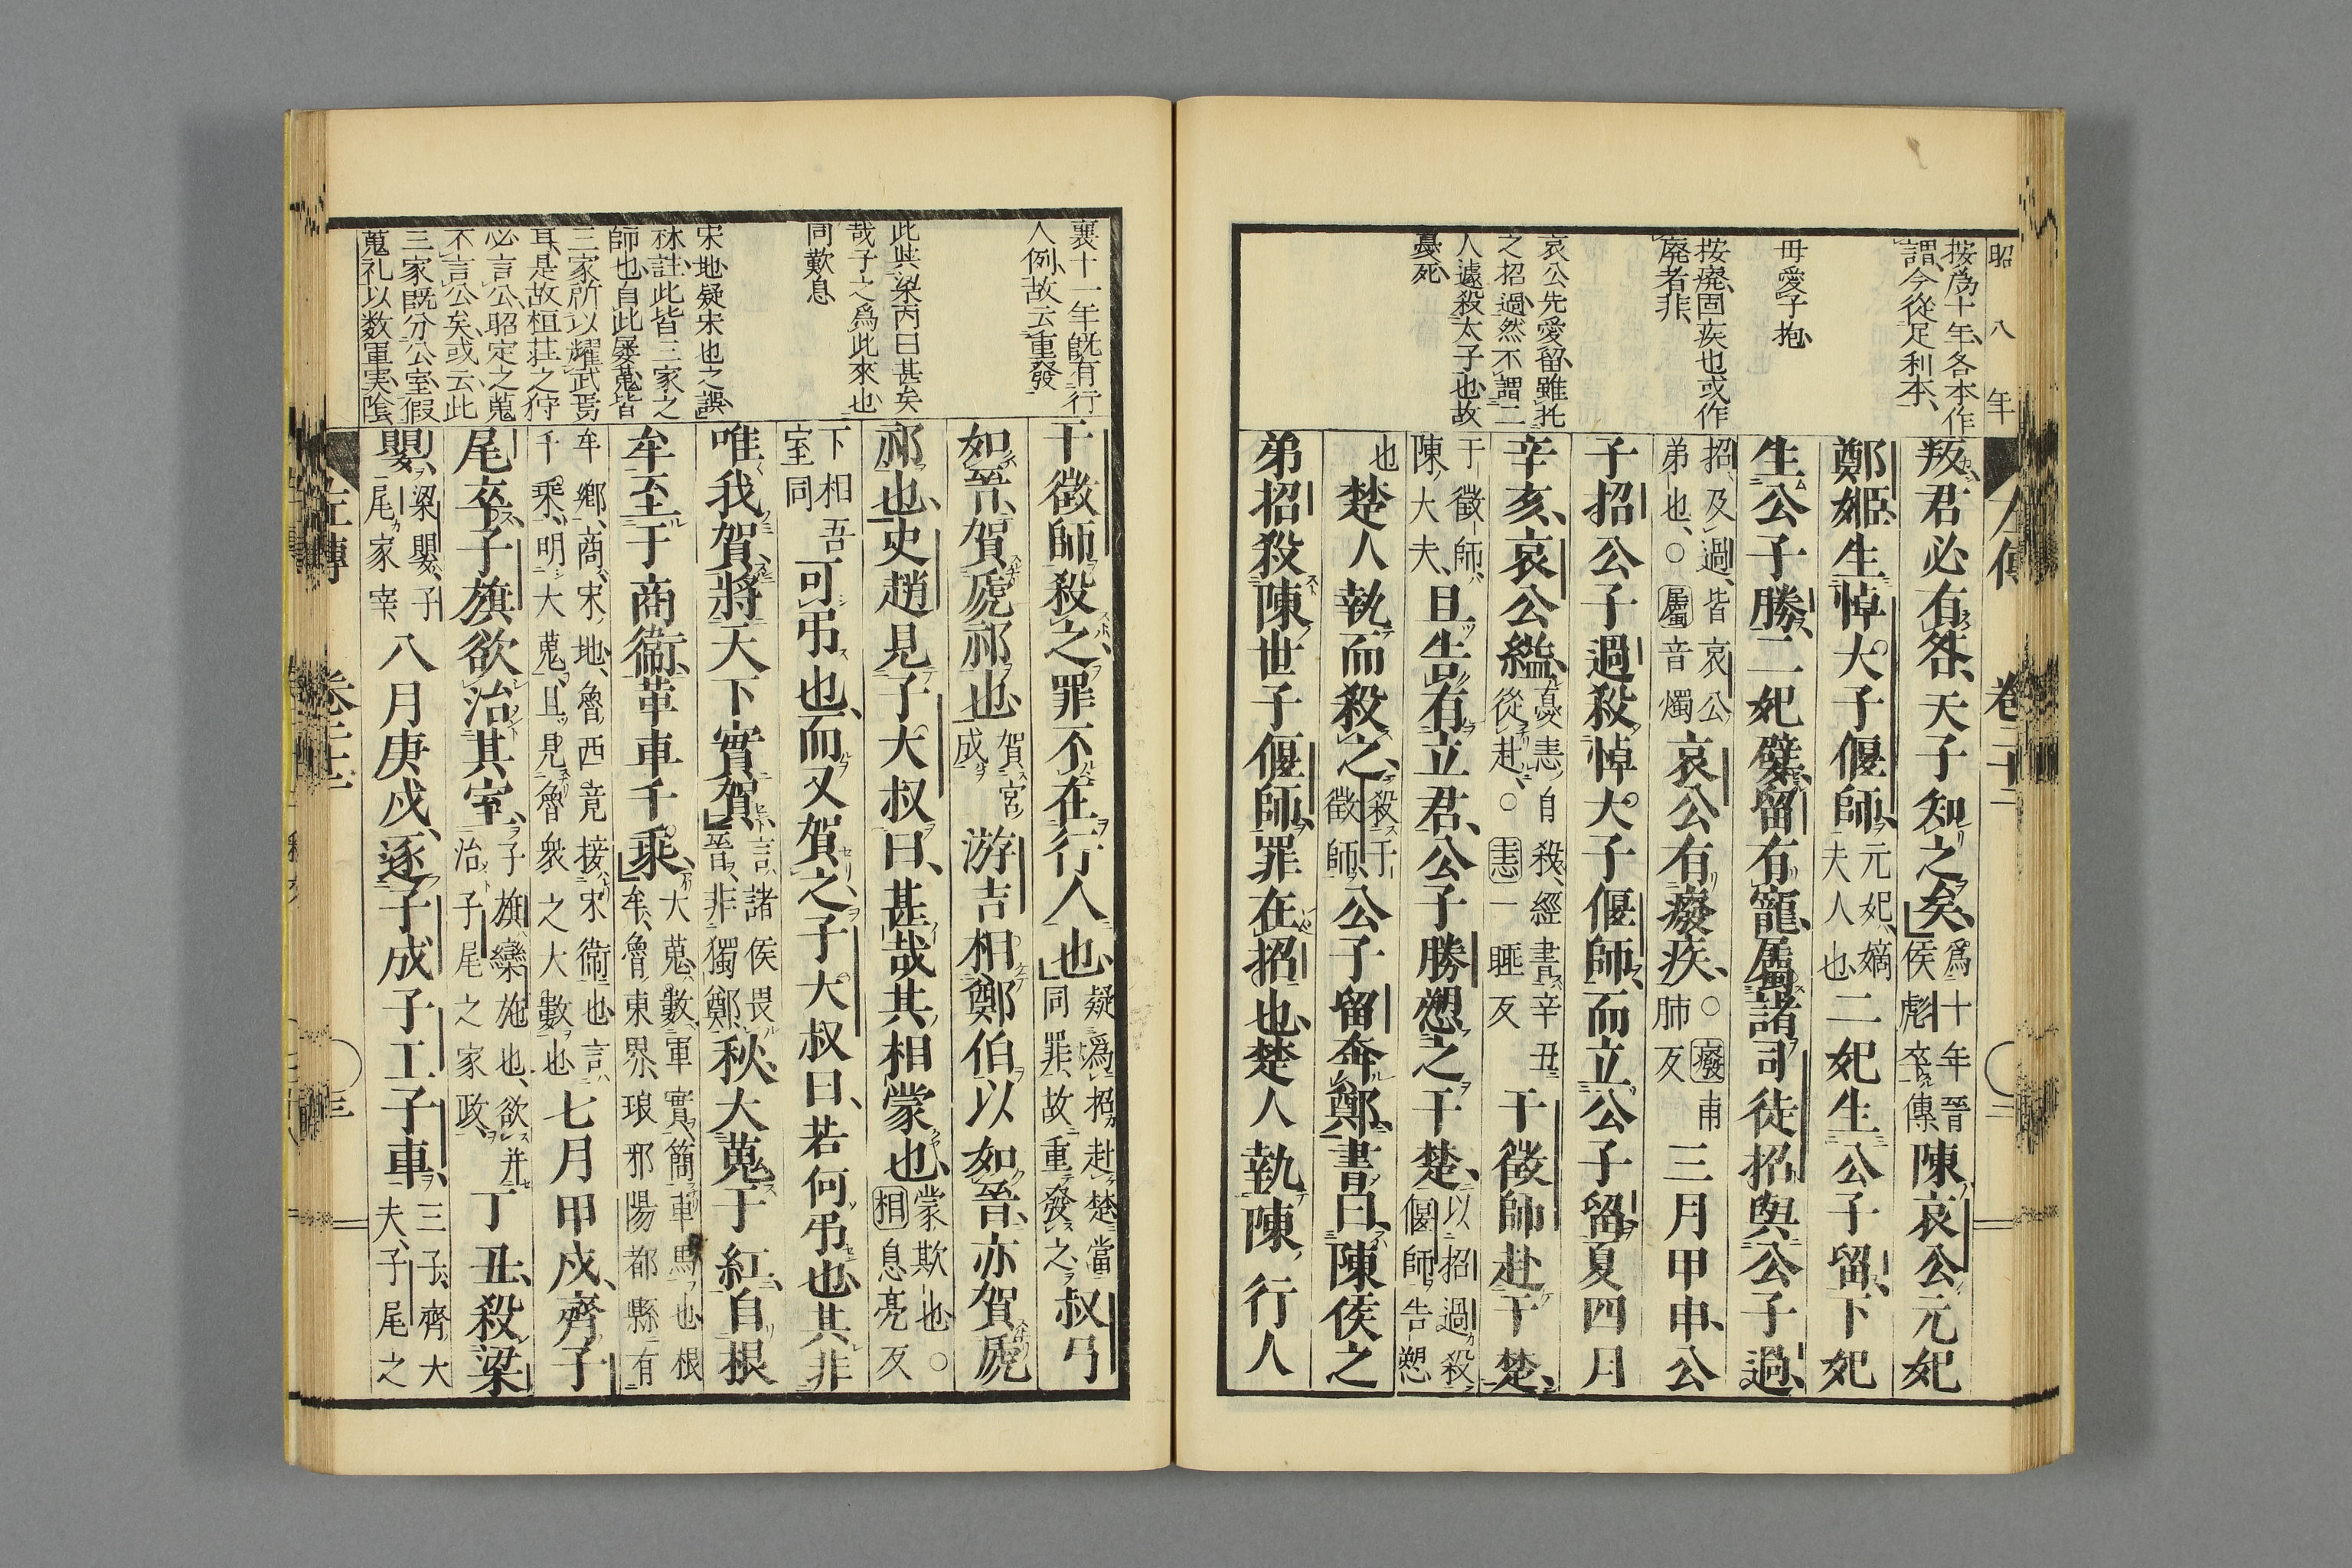 昭八年
按爲十年各本作
謂今從足利本
母愛子抱
按廃固疾也或作
廃者非
哀公先愛留雖托
之招過然不謂二
人遽殺太子也故
憂死
叛君必有咎天子知之矣爲十年晉侯彪卒傳陳哀公元妃
鄭姬生悼大子偃師元妃嫡夫人也二妃生公子留下妃
生公子勝二妃嬖留有寵屬諸司徒招與公子過
招及過皆哀公弟也○屬音燭哀公有癈疾○癈甫肺反三月甲申公
子招公子過殺悼大子偃師而立公子留夏四月
辛亥哀公縊憂恚自殺經書辛丑從赴○恚一睡反干徵師赴于楚
于徵師陳大夫且告有立君公子勝愬之于楚以招過殺偃師告愬
也楚人執而殺之殺于徵師公子留奔鄭書曰陳侯之
弟招殺陳世子偃師罪在招也楚人執陳行人
襄十一年既有行
人例故云重發
此與梁丙曰甚矣
哉子之爲此來也
同歎息
宋地疑宋也之誤
秝註此皆三家之
師也自此屡蒐皆
三家所以耀武焉
耳是故桓莊之狩
必言公昭定之蒐
不言公矣或云此
三家既分公室假
蒐礼以数軍実陰
干徵師殺之罪不在行人也疑爲招赴楚當同罪故重發之叔弓
如晉賀虒祁也賀宮成游吉相鄭伯以如晉亦賀虒
祁也史趙見子大叔曰甚哉其相蒙也蒙欺也○相息亮反
下相吾室同可弔也而又賀之子大叔曰若何弔也其非
唯我賀將天下實賀言諸侯畏晉非獨鄭秋大蒐于紅自根
牟至于商衞革車千乘大蒐數軍實簡車馬也根牟魯東界琅邪陽都縣有
牟鄉商宋地魯西竟接宋衞也言千乘明大蒐且見魯衆之大數也七月甲戌齊子
尾卒子旗欲治其室子旗欒施也欲并治子尾之家政丁丑殺梁
嬰梁嬰子尾家宰八月庚戌逐子成子工子車三子齊大夫子尾之
左傳　卷二十二